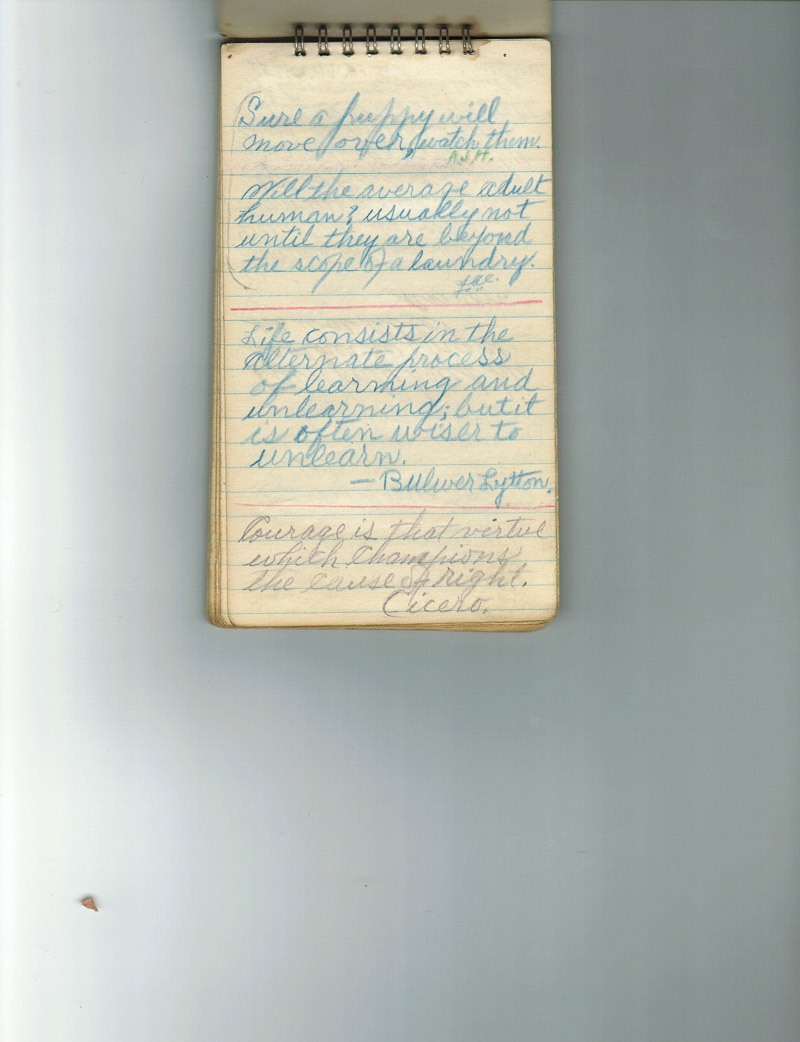 Sure a puppy will
move over, watch them.
Will the average adult
human? usually not
until they are beyond
the scope of a laundry.
Life consists in the
alternate process
of learning and
unlearning; but it
is often wiser to
unlearn.
— Bulwer Lytton.
Courage is that virtue
which champions
the cause of right.
Cicero.